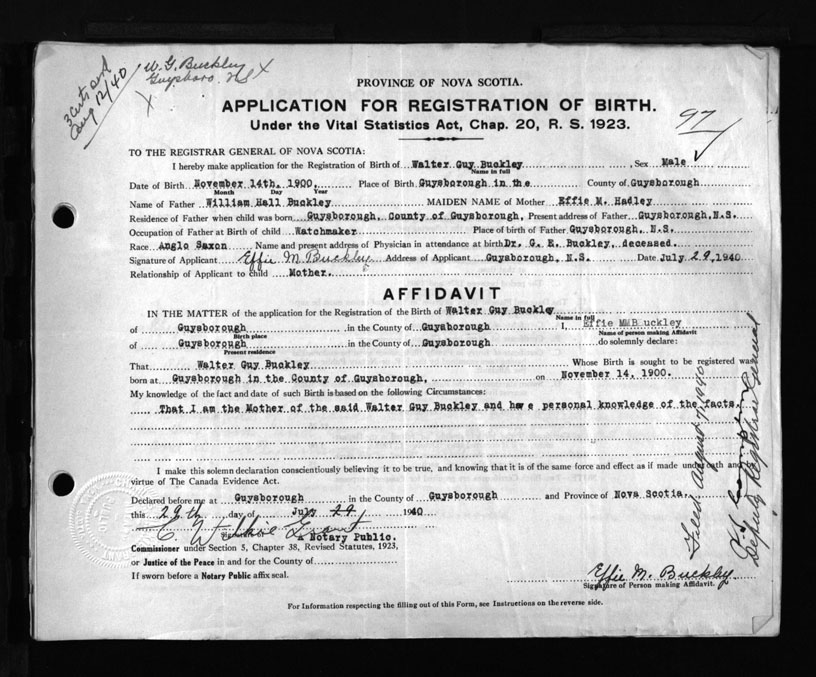 W. G. Buckley
Guysboro, N.S.
X
X
Aug 12/40
PROVINCE OF NOVA SCOTIA.
APPLICATION FOR REGISTRATION OF BIRTH.
Under the Vital Statistics Act, Chap. 20, R. S. 1923.
97
TO THE REGISTRAR GENERAL OF NOVA SCOTIA:
I hereby make application for the Registration of Birth of Walter Guy Buckley Sex Male
Name in full
Date of Birth November 14th, 1900, Place of Birth Guysborough in the County of Guysborough
Month Day Year
Name of Father William Hall Buckley MAIDEN NAME of Mother Effie M. Hadley
Residence of Father when child was born Guysborough, County of Guysborough, Present address of Father Guysborough, N.S.
Occupation of Father at Birth of child Watchmaker Place of birth of Father Guysborough, N.S.
Race Anglo Saxon Name and present address of Physician in attendance at birth Dr. G. E. Buckley, deceased.
Signature of Applicant Effie M. Buckley Address of Applicant Guysborough, N.S. Date July 29, 1940
Relationship of Applicant to child Mother.
AFFIDAVIT
IN THE MATTER of the application for the Registration of the Birth of Walter Guy Buckley
Name in full
of Guysborough in the County of Guysborough I, Effie MMB uckley
Birth place Name of person making Affidavit
of Guysborough in the County of Guysborough do solemnly declare:
Present residence
That Walter Guy Buckley Whose Birth is sought to be registered was
born at Guysborough in the County of Guysborough, on November 14, 1900.
My knowledge of the fact and date of such Birth is based on the following Circumstances:
That I am the Mother of the said Walter Guy Buckley and have personal knowledge of the facts.
I make this solemn declaration conscientiously believing it to be true, and knowing that it is of the same force and effect as if made under oath and
virtue of The Canada Evidence Act.
Declared before me at Guysborough in the County of Guysborough and Province of Nova Scotia,
this 29th day of July 29 1940
Grant
A Notary Public.
Commissioner under Section 5, Chapter 38, Revised Statutes, 1923,
or Justice of the Peace in and for the County of
If sworn before a Notary Public affix seal.
Effie M. Buckley
Signature of Person making Affidavit.
For Information respecting the filling out of this Form, see Instructions on the reverse side.
Filed August 7, 1940
Deputy Registrar General